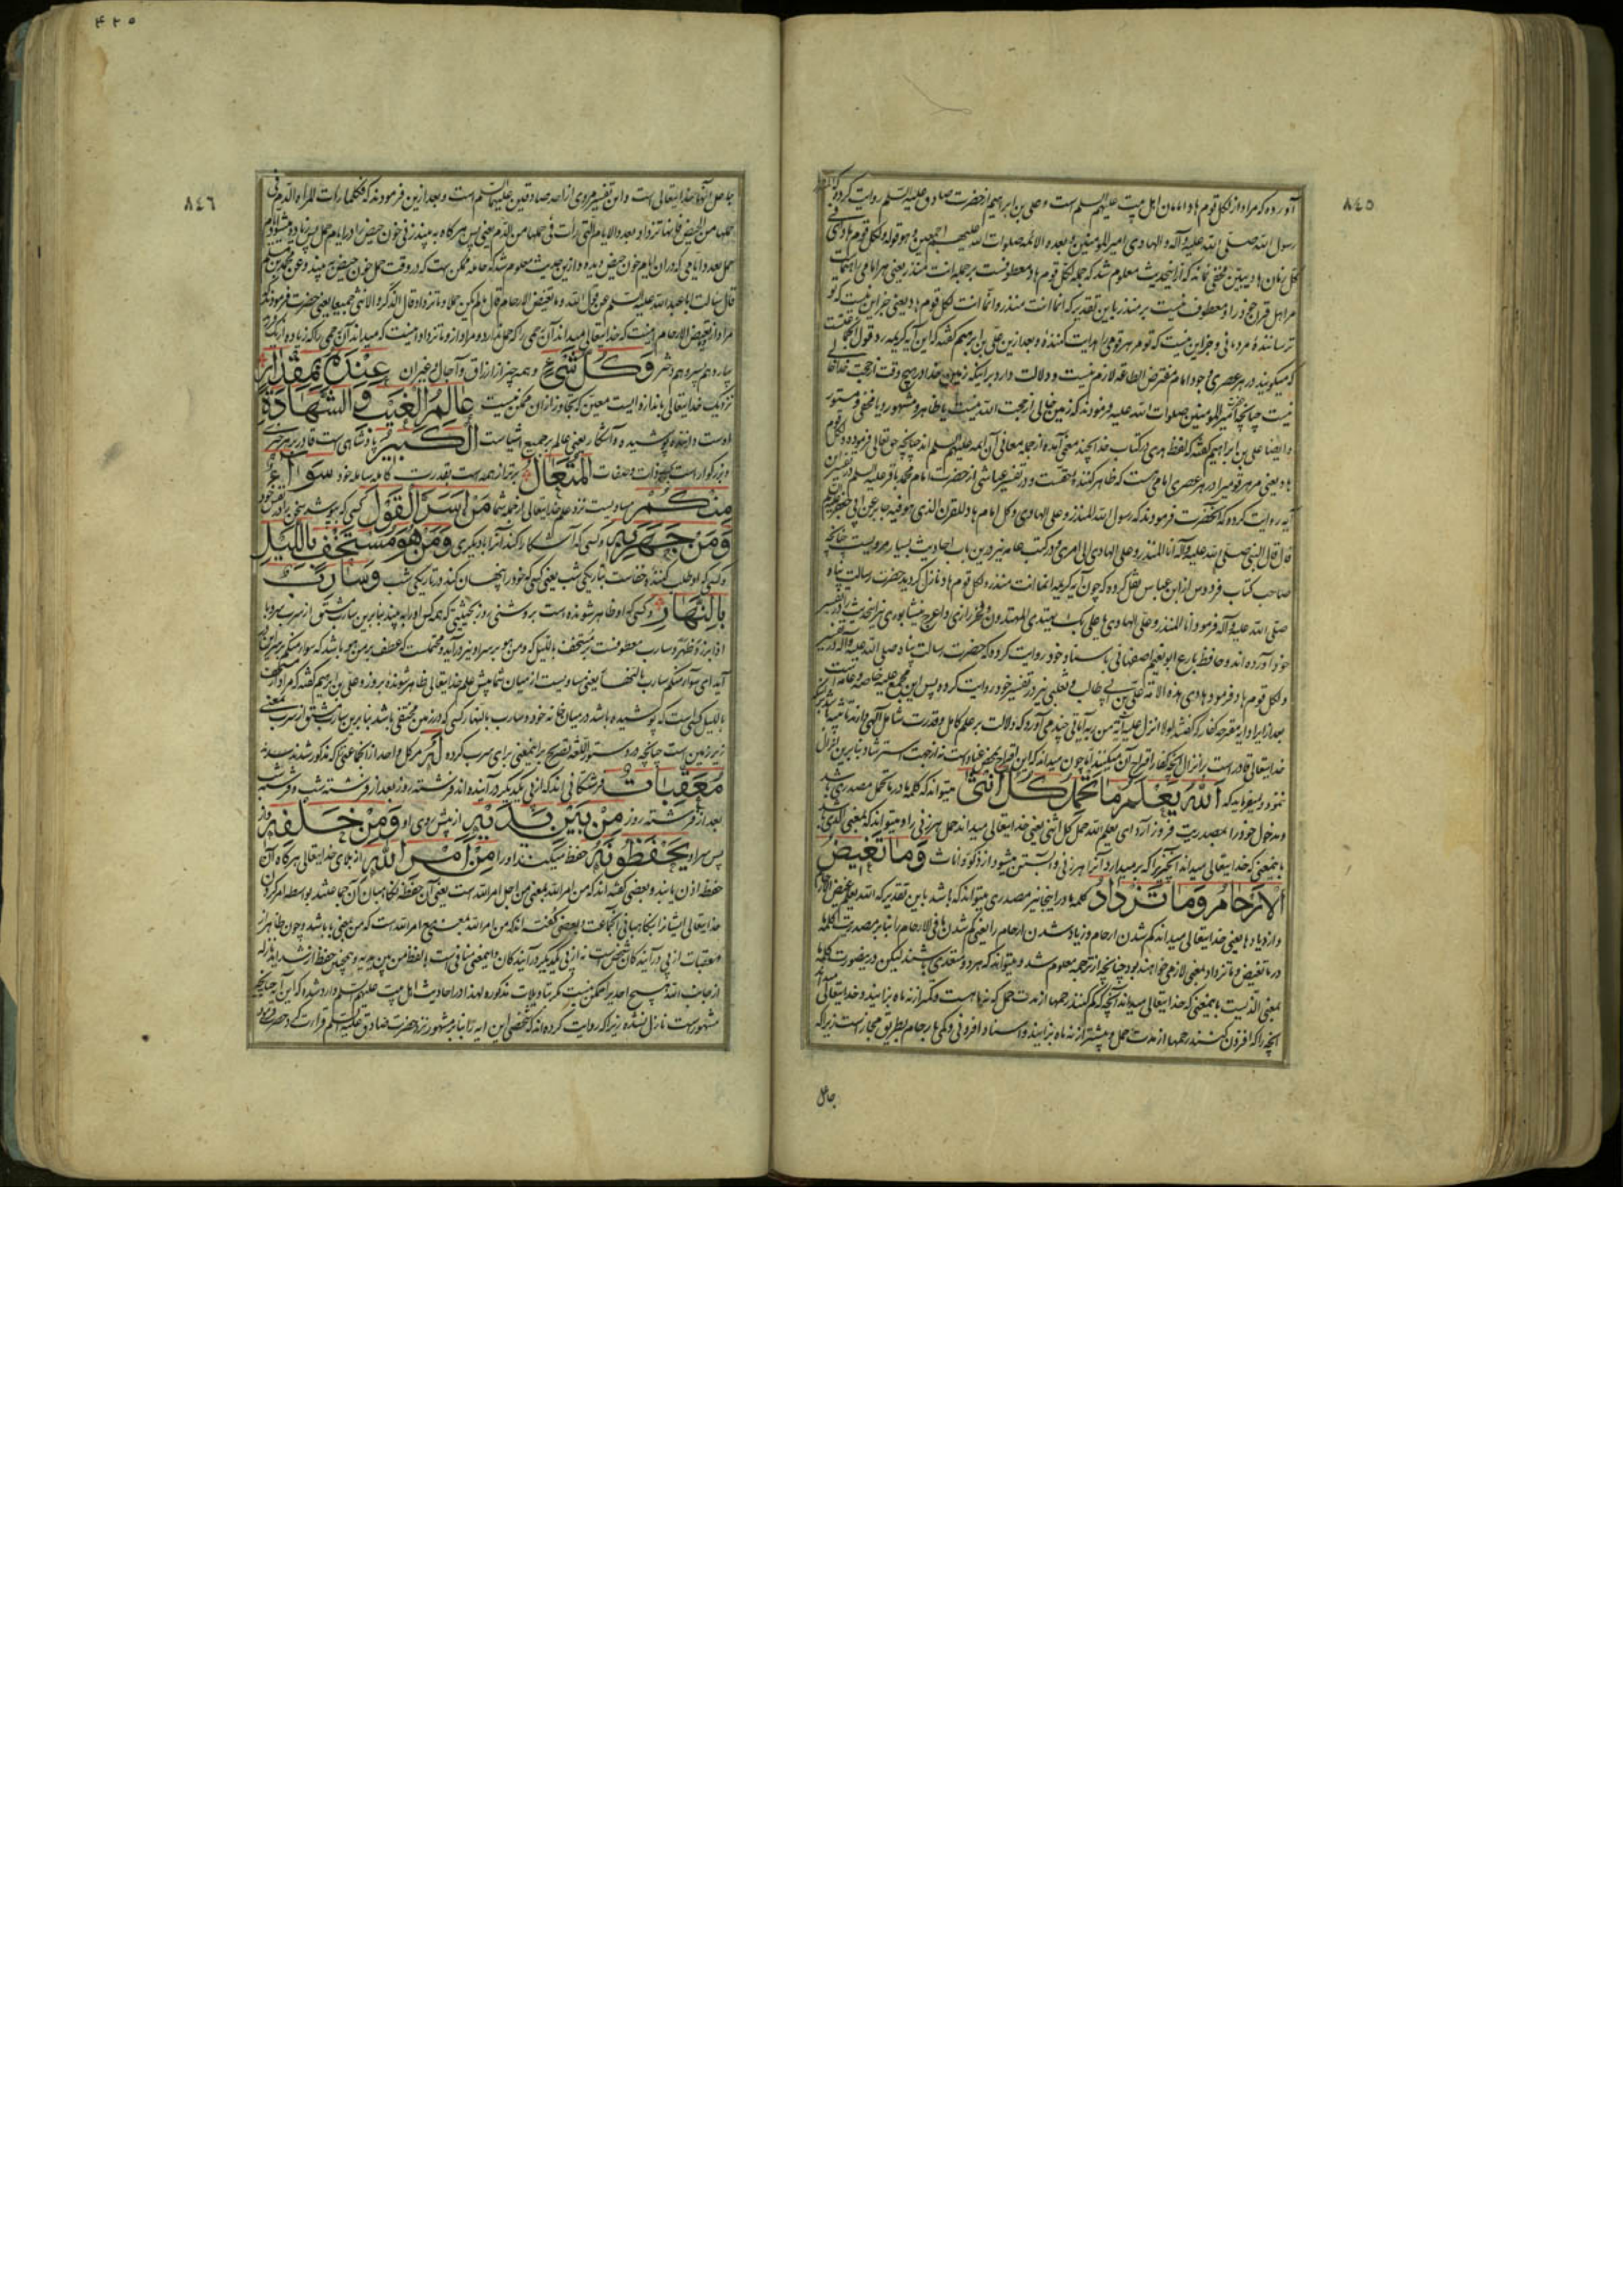 ٨٤٥
آورده که مراد از لکل قوم هاد امامان اهل بیت علیهم السلم است و علی بن ابراهیم از حضرت صادق علیه السلم روایت کرده که
رسول الله صلی الله علیه و آله و الهادی امیر المومنین و بعده الائمه صلوات الله علیهم اجمعین و هو قوله و لکل قوم هاد فی
کل زمان هاد مبین مخفی نماند که از این حدیث معلوم شد که جمله لکل قوم هاد معطوفست بر جمله انت منذر یعنی هر امامی
معطوف نیست بر منذر باین تقدیر که انما انت منذر و انما انت لکل قوم هاد یعنی جز این نیست که تو
ترسانندهٔ مردمانی و جز این نیست که تو مر هر قومی را هدایت کنندهٔ و بعد ازین علی بن ابرهیم گفته که این آیه کریمه رد قول
که میگویند در هر عصری وجود امام مفترض الطاعه لازم نیست و دلالت دارد بر اینکه زمین خدا در هیچ وقت از حجت خدا خالی
نیست چنانچه امیر المومنین صلوات الله علیه فرمودند که زمین خالی از حجت الله نیست یا ظاهر و مشهور و یا مخفی و مستور
و ایضا علی بن ابراهیم گفته که لفظ هدی در کتاب خدا بچند معنی آمده از جمله معانی آن ایمه علیهم السلم اند چنانچه حق تعالی فرموده و لکل قوم
هاد یعنی مر هر قومی را در هر عصری امامی هست که ظاهر کننده حقست و در تفسیر عیاشی از حضرت امام محمد باقر علیه السلم در تفسیر این
آیه روایت کرده که آنحضرت فرمودند که رسول الله المنذر و علی الهادی و کل امام هاد للقرن الذی هو فیه
قال قال النبی صلی الله علیه و آله انا المنذر و علی الهادی الی امری و در کتب عامه نیز درین باب احادیث بسیار مرویست چنانچه
صاحب کتاب فردوس از ابن عباس نقل کرده که چون آیه کریمه انما انت منذر و لکل قوم هاد نازل گردید حضرت رسالت پناه
صلی الله علیه و آله فرمود انا المنذر و علی الهادی یا علی بک یهتدی المهتدون و فخر رازی و اعرج نیشابوری نیز این حدیث را در تفسیر
خود آورده اند و حافظ بارع ابو نعیم اصفهانی باسناد خود روایت کرده که حضرت رسالت پناه صلی الله علیه و آله در تفسیر
و لکل قوم هاد فرمود هادی هذه الامة علی بن ابی طالب و ثعلبی نیز در تفسیر خود روایت کرده پس این مجمع علیه خاصه و عامه است
بعد از ایراد آیه مقترحه کفار که گفتند لولا انزل علیه آیة من ربه آیاتی چند می آورد که دلالت بر علم کامل و قدرت شامل الهی دارند
خدایتعالی قادر است بر انزال آنچه کفار اقتراح آن میکنند اما چون میداند که این اقتراح محض عناد است نه از جهت استرشاد بنابرین انزال
ننمود و میفرماید که اَللّٰهُ یَعْلَمُ مَا تَحْمِلُ کُلُّ اُنْثٰی میتواند که کلمه ما در ما تحمل مصدری باشد
و مدخول خود را بمصدریت فرود آرد ای یعلم الله حمل کل انثی یعنی خدایتعالی میداند حمل هر زنی را و میتواند که بمعنی الذی باشد
باینمعنی که خدایتعالی میداند آنچیز را که بر میدارد آنرا هر زنی و آبستن میشود از ذکور و اناث وَ مَا تَغِیضُ
الْاَرْحَامُ وَ مَا تَزْدَادُ کلمه ما در اینجا نیز مصدری میتواند که باشد باین تقدیر که الله یعلم غیض الارحام
و ازدیادها یعنی خدایتعالی میداند کم شدن ارحام و زیاد شدن ارحام را یعنی کم شدن ما فی الارحام را بنابر مصدریت کلمه
در ما تغیض و ما تزداد بمعنی لازمی خواهند بود چنانچه از ترجمه معلوم شد و میتواند که هر دو متعدی باشند لیکن درین صورت کلمه ما
بمعنی الذیست باینمعنی که خدایتعالی میداند آنچه که کم کنند رحمها از مدت حمل که نه ماهست و کمتر از نه ماه بزایند و خدایتعالی میداند
آنچه را که افزون کنند رحمها از مدت حمل و بیشتر از نه ماه بزایند و اسناد افزونی و کمی بارحام بطریق مجاز است زیرا که
جاعل
٤٢٥
٨٤٦
جاعل آنها خدایتعالی است و این تفسیر مروی از احد صادقین علیهما السلم است و بعد ازین فرمودند که فکلما رات المراة الدم فی
حملها من الحیض فانها تزداد بعدد الایام التی رات فی حملها من الدم یعنی پس هر گاه به بیند زنی خون حیض را در ایام حمل پس زیاده میشود ایام
حمل بعدد ایامی که در آن ایام خون حیض دیده و ازین حدیث معلوم شد که حامله ممکن هست که در وقت حمل خون حیض به بیند و عن محمد بن مسلم
قال سالت ابا عبد الله علیه السلم عن قول الله و ما تغیض الارحام قال ما لم یکن حملا و ما تزداد قال الذکر و الانثی جمیعا یعنی حضرت فرمودند که
مراد از تغیض الارحام اینست که خدایتعالی میداند آن رحمی را که حمل ندارد و مراد از و ما تزداد اینست که میداند آن رحمی را که زیاده دارد
وَ کُلُّ شَیْءٍ و همه چیز از ارزاق و آجال و غیر آن عِنْدَهُ بِمِقْدَارٍ
نزدیک خدایتعالی باندازه ایست معین که تجاوز از آن ممکن نیست عَالِمُ الْغَیْبِ وَ الشَّهَادَةِ
اوست داننده پوشیده و آشکار یعنی عالم بر جمیع اشیاست الْکَبِیرُ پادشاهی است قادر بر هر چیزی
و بزرگوار است بحسب ذات و صفات الْمُتَعَالِ برتر از همه است بقدرت کامله خود سَوَاءٌ
مِنْکُمْ مساویست نزد علم خدایتعالی از جمله شما مَنْ اَسَرَّ الْقَوْلَ کسی که بپوشد سخن را در نفس خود
وَ مَنْ جَهَرَ بِهِ و کسی که آشکارا کند آنرا بدیگری وَ مَنْ هُوَ مُسْتَخْفٍ بِاللَّیْلِ
و کسی که او طلب کنندهٔ خفاست بتاریکی شب یعنی کسی که خود را پنهان کند در تاریکی شب وَ سَارِبٌ
بِالنَّهَارِ و کسی که او ظاهر شونده است بروشنی روز بحیثیتی که همه کس او را به بیند بنابرین سارب مشتق از سرب سروبا
اذا برز و ظهر و سارب معطوفست بر مستخف باللیل
آید ای سواء منکم سارب بالنهار یعنی مساویست از میان شما پیش علم خدایتعالی ظاهر شوندهٔ بروز و علی بن ابرهیم گفته که مراد از مستخف
باللیل کسی است که پوشیده باشد در میان خانه خود و سارب بالنهار کسی که در زمین مختفی باشد بنابرین سارب مشتق از سرب بمعنی
زیر زمین است چنانچه در دستور اللغه تصریح باینمعنی برای سرب کرده لَهُ مر هر یکی و احد از آنجماعتی که مذکور شدند
مُعَقِّبَاتٌ فرشتگانی اند که از پی یکدیگر در آینده اند فرشته روز بعد از فرشته شب و فرشته شب
بعد از فرشته روز مِنْ بَیْنِ یَدَیْهِ از پیش روی او وَ مِنْ خَلْفِهِ و از
پس سر او یَحْفَظُونَهُ حفظ میکنند او را مِنْ اَمْرِ اللّٰهِ از بلای خدایتعالی هر گاه آن
حفظه اذن یابند و بعضی گفته اند که من امر الله بمعنی من اجل امر الله است یعنی آن حفظه نگاهبانان آن جماعتند بواسطه امر کردن
خدایتعالی ایشانرا بنگاهبانی آنجماعت و بعضی گفته اند که من امر الله بمعنی بامر الله است که من بمعنی با باشد و چون ظاهر از
معقبات از پی در آیندگان شخص است نه از پی یکدیگر در آیندگان و اینمعنی منافی است با لفظ من بین یدیه و همچنین حفظ از شداید نازله
از جانب الله هیچ احدیرا ممکن نیست مگر بتاویلات مذکوره لهذا در احادیث اهل بیت علیهم السلم وارد شده که این آیه چنانچه
مشهور است نازل نشده زیرا که روایت کرده اند که شخصی این آیه را بنابر مشهور نزد حضرت صادق علیه السلم قرائت کرد حضرت فرمود